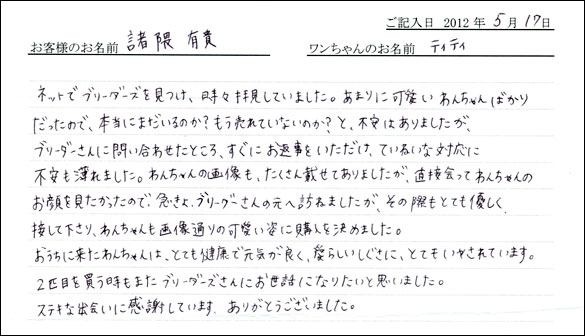 ご記入日 2012年 5月 17日
お客様のお名前 諸隈 有貴 ワンちゃんのお名前 ティティ
ネットでブリーダーズを見つけ、時々拝見していました。あまりに可愛いわんちゃんばかり
だったので、本当にまだいるのか?もう売れていないのか?と、不安はありましたが、
ブリーダーさんに問い合わせたところ、すぐにお返事をいただけ、ていねいな対応に
不安も薄れました。わんちゃんの画像も、たくさん載せてありましたが、直接会ってわんちゃんの
お顔を見たかったので、急きょ、ブリーダーさんの元へ訪ねましたが、その際もとても優しく
接して下さり、わんちゃんも画像通りの可愛い姿に購入を決めました。
おうちに来たわんちゃんは、とても健康で元気が良く、愛らしいしぐさに、とてもいやされています。
2匹目を買う時もまたブリーダーズさんにお世話になりたいと思いました。
ステキな出会いに感謝しています。ありがとうございました。